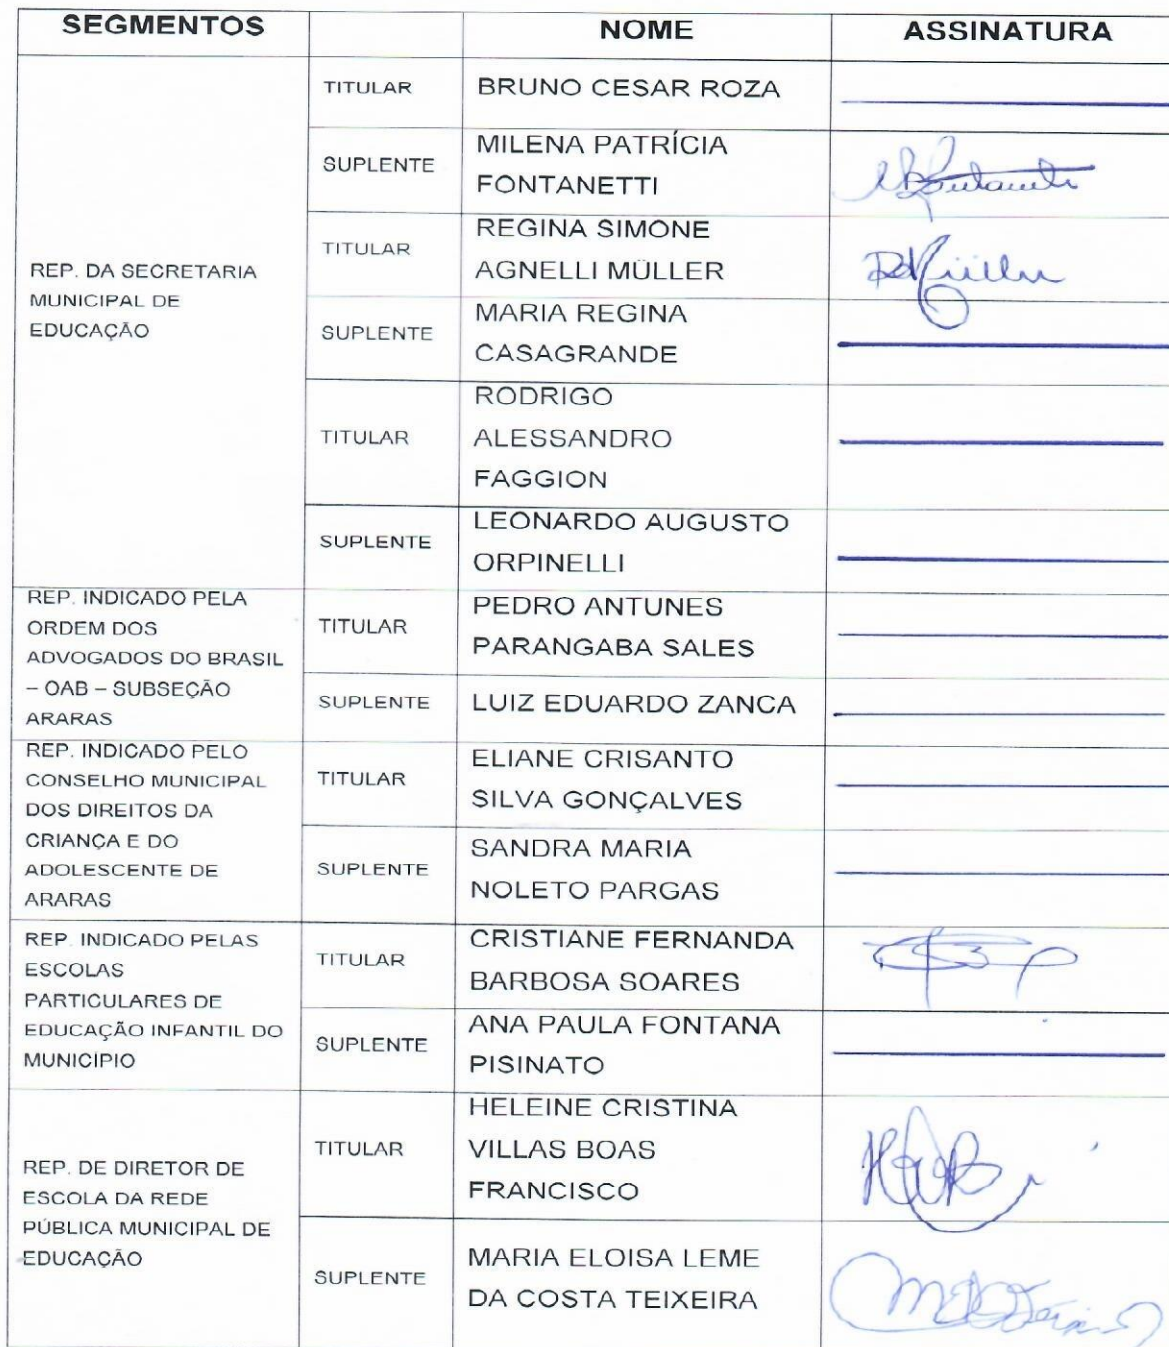 SEGMENTOS NOME ASSINATURA
REP. DA SECRETARIA
MUNICIPAL DE
EDUCAÇÃO
TITULAR
BRUNO CESAR ROZA
SUPLENTE
MILENA PATRÍCIA
FONTANETTI
TITULAR
REGINA SIMONE
AGNELLI MÜLLER
SUPLENTE
MARIA REGINA
CASAGRANDE
TITULAR
RODRIGO
ALESSANDRO
FAGGION
SUPLENTE
LEONARDO AUGUSTO
ORPINELLI
REP. INDICADO PELA
ORDEM DOS
ADVOGADOS DO BRASIL
– OAB – SUBSEÇÃO
ARARAS
TITULAR
PEDRO ANTUNES
PARANGABA SALES
SUPLENTE
LUIZ EDUARDO ZANCA
REP. INDICADO PELO
CONSELHO MUNICIPAL
DOS DIREITOS DA
CRIANÇA E DO
ADOLESCENTE DE
ARARAS
TITULAR
ELIANE CRISANTO
SILVA GONÇALVES
SUPLENTE
SANDRA MARIA
NOLETO PARGAS
REP. INDICADO PELAS
ESCOLAS
PARTICULARES DE
EDUCAÇÃO INFANTIL DO
MUNICIPIO
TITULAR
CRISTIANE FERNANDA
BARBOSA SOARES
SUPLENTE
ANA PAULA FONTANA
PISINATO
REP. DE DIRETOR DE
ESCOLA DA REDE
PÚBLICA MUNICIPAL DE
EDUCAÇÃO
TITULAR
HELEINE CRISTINA
VILLAS BOAS
FRANCISCO
SUPLENTE
MARIA ELOISA LEME
DA COSTA TEIXEIRA